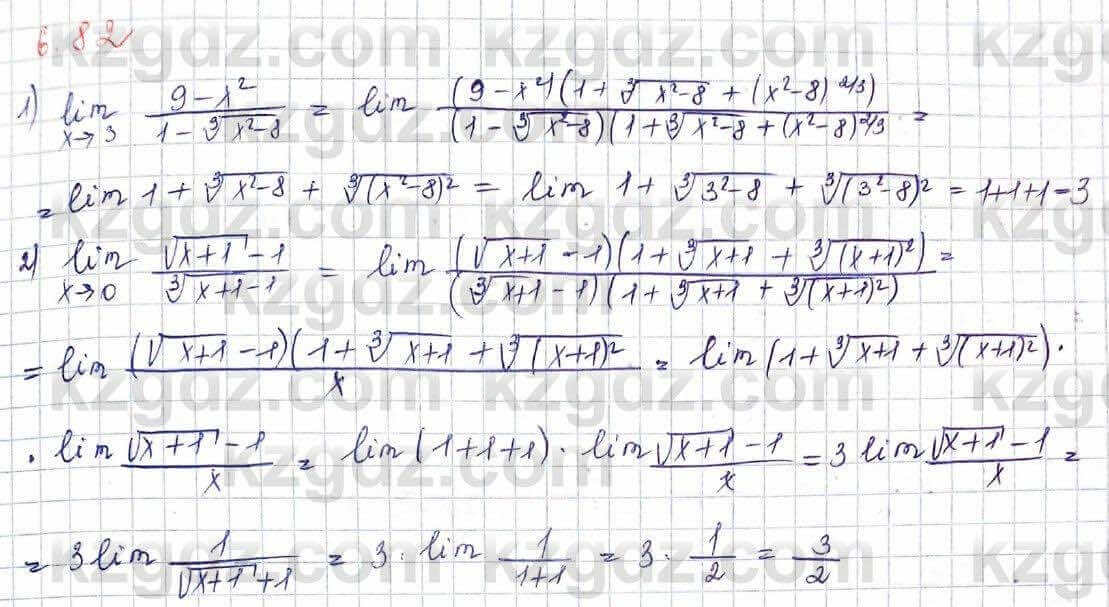 6.82
1) lim x→3 (9-x²)/(1-∛(x²-8)) = lim ((9-x²)(1+∛(x²-8)+(x²-8)^2/3))/((1-∛(x²-8))(1+∛(x²-8)+(x²-8)^2/3) =
= lim 1+∛(x²-8)+∛((x²-8)²) = lim 1+∛(3²-8)+∛((3²-8)²) = 1+1+1=3
2) lim x→0 (√(x+1)-1)/(∛(x+1)-1) = lim ((√(x+1)-1)(1+∛(x+1)+∛((x+1)²))/((∛(x+1)-1)(1+∛(x+1)+∛((x+1)²)) =
= lim ((√(x+1)-1)(1+∛(x+1)+∛((x+1)²)/x = lim (1+∛(x+1)+∛((x+1)²))·
· lim (√(x+1)-1)/x = lim (1+1+1)· lim (√(x+1)-1)/x = 3 lim (√(x+1)-1)/x =
= 3 lim 1/(√(x+1)+1) = 3· lim 1/(1+1) = 3· 1/2 = 3/2
kzgdz.com